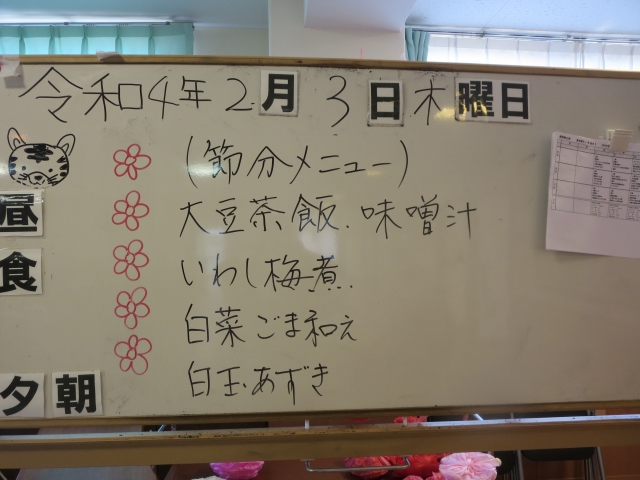 令和4年2月3日木曜日
(節分メニュー)
大豆茶飯.味噌汁
いわし梅煮.
白菜ごま和え
白玉あずき
昼
食
夕朝